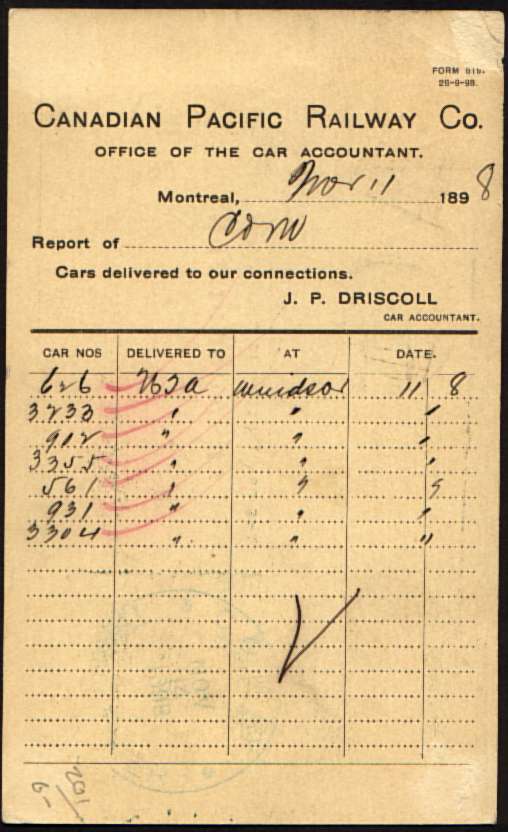 FORM 819.
26-9-98.
CANADIAN PACIFIC RAILWAY CO.
OFFICE OF THE CAR ACCOUNTANT.
Montreal, Nov 11 1898
Report of
Cars delivered to our connections.
J. P. DRISCOLL
CAR ACCOUNTANT.
CAR NOS DELIVERED TO AT DATE.
626 Windsor 11 8
3233 " " "
902 " " "
3355 " " "
561 " " "
931 " " "
3304 " " "